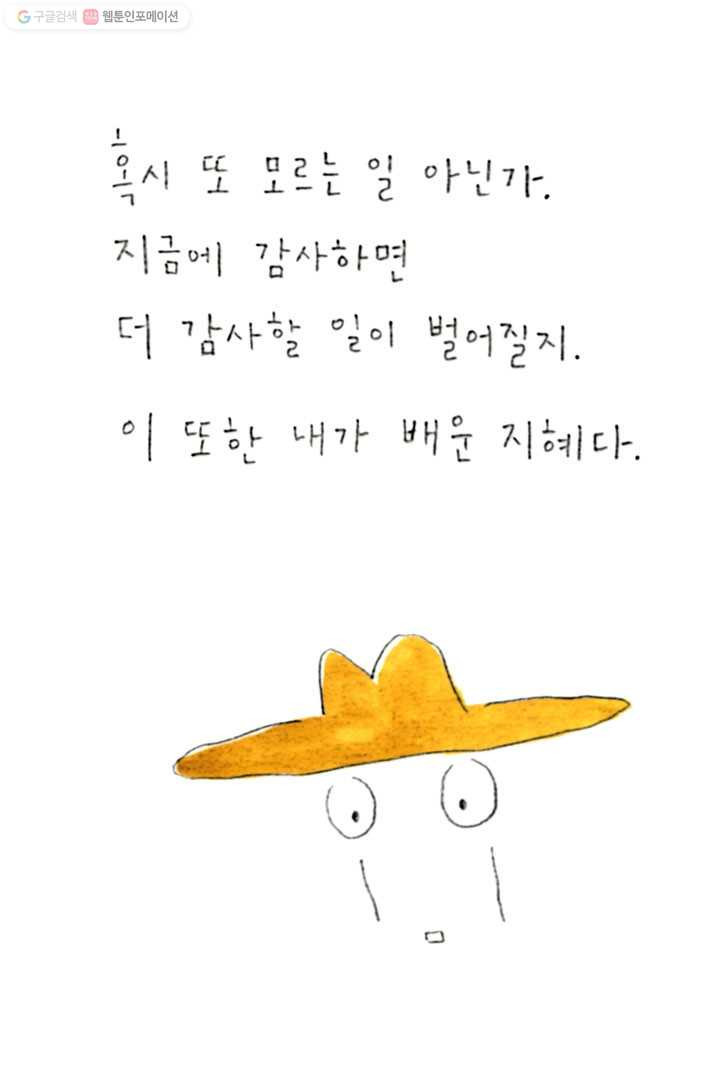 구글검색 웹툰인포메이션
혹시 또 모르는 일 아닌가.
지금에 감사하면
더 감사할 일이 벌어질지.
이 또한 내가 배운 지혜다.